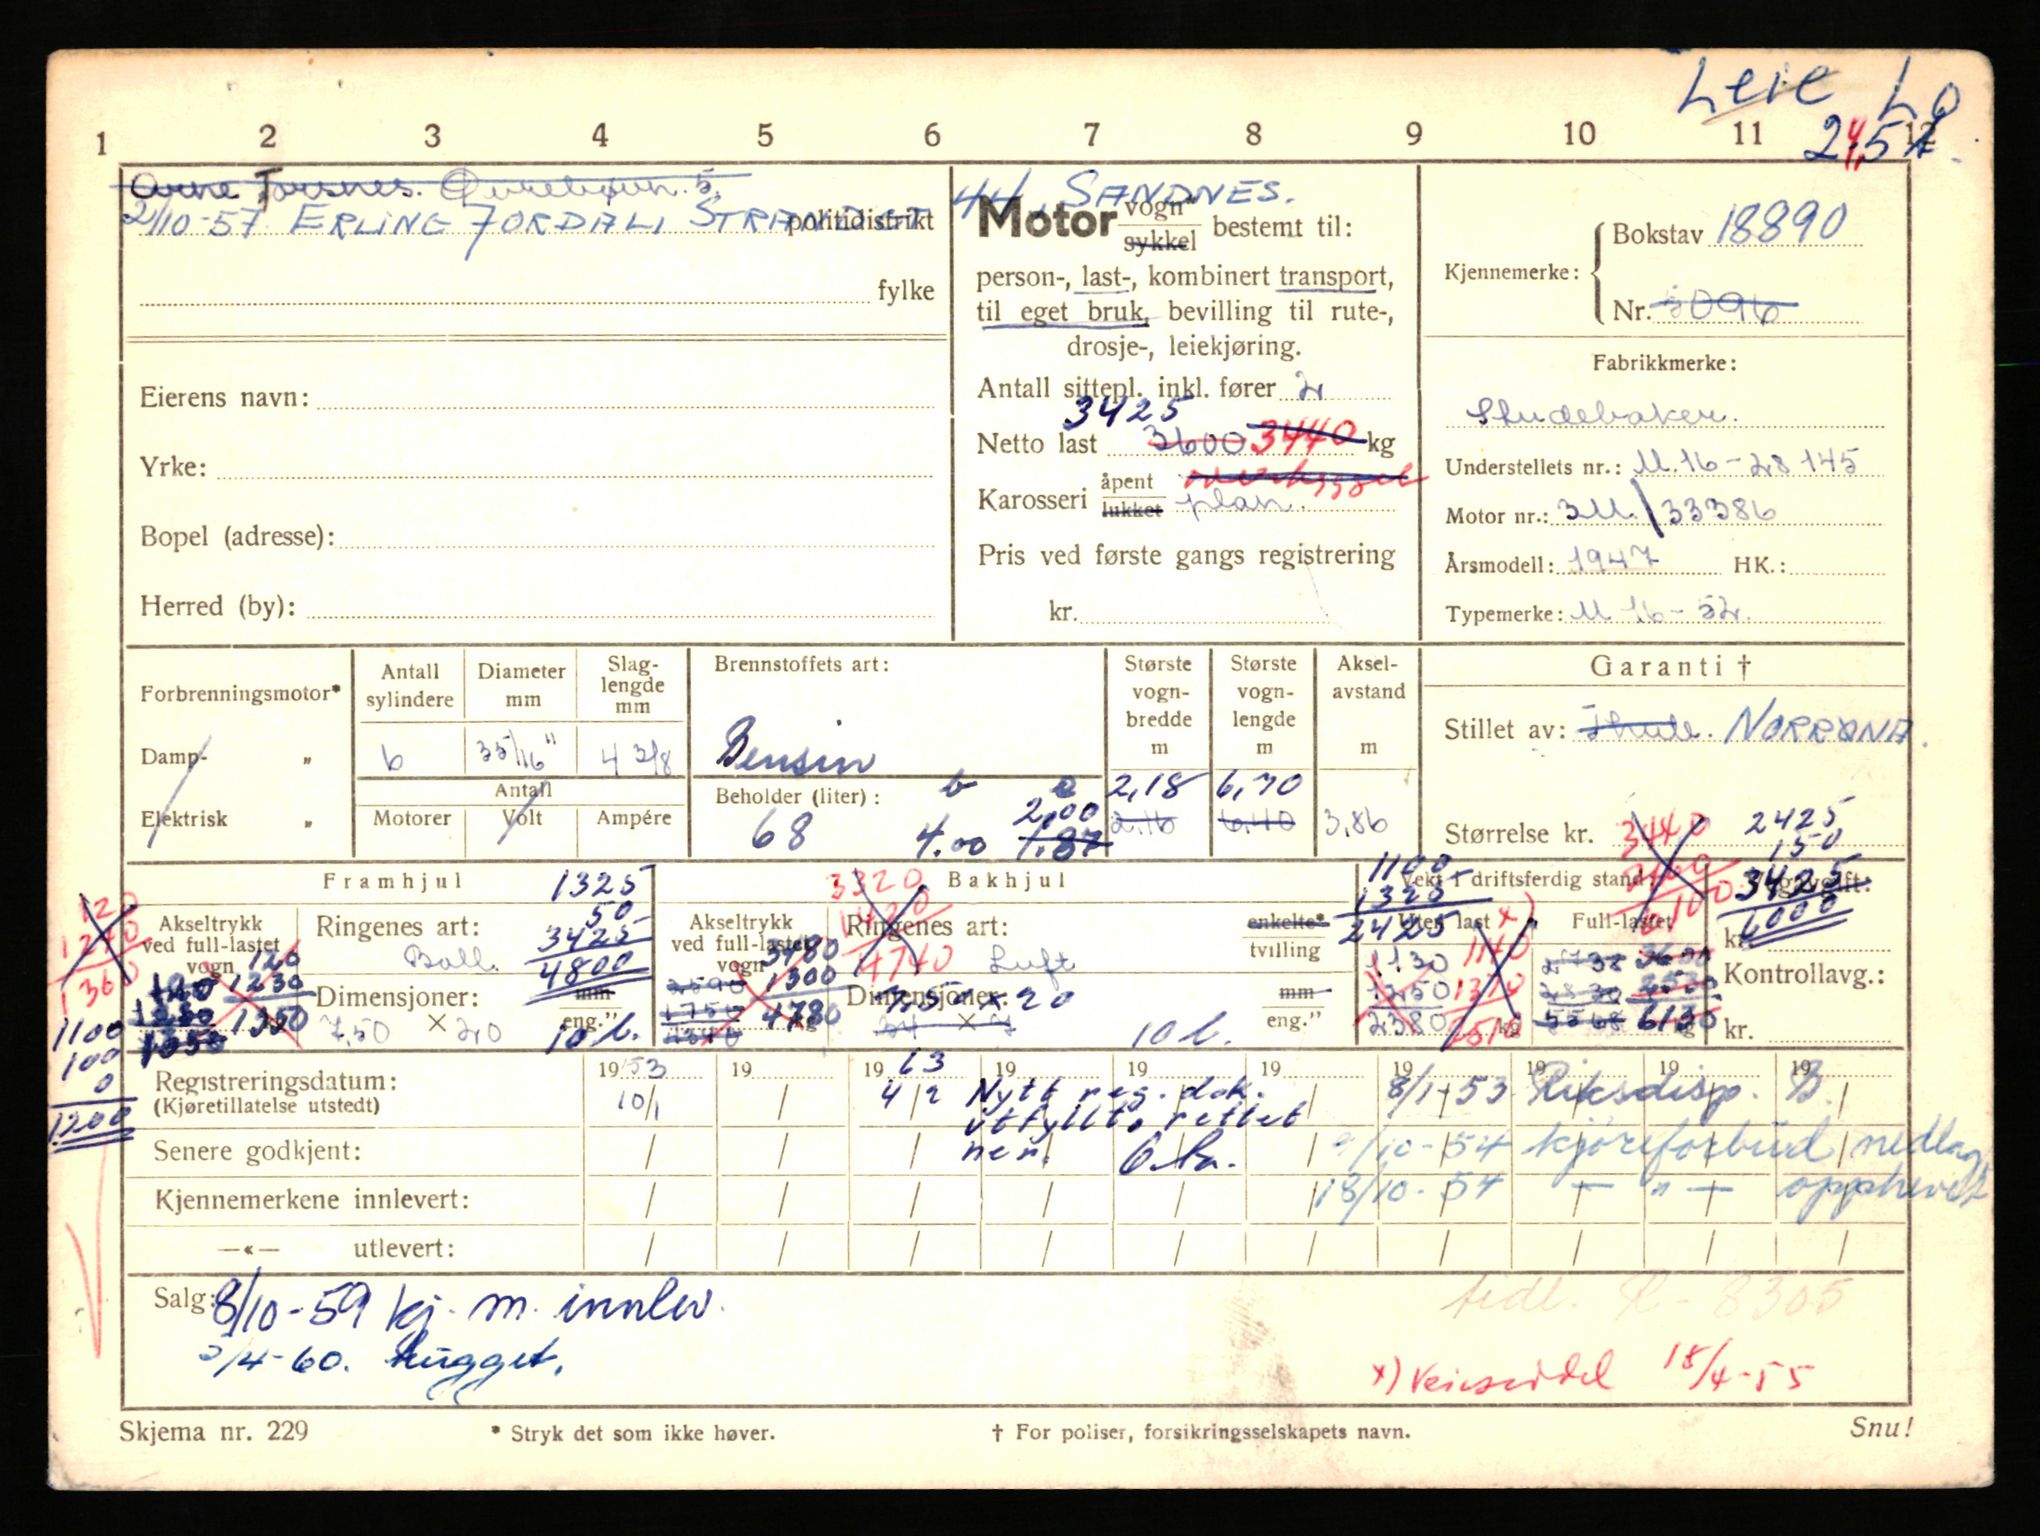 Leie L
1 2 3 4 5 6 7 8 9 10 11 12
Arne Torsnes.
2/10-57 ERLING FORDAL, politidistrikt
44, SANDNES.
fylke
Eierens navn:
Yrke:
Bopel (adresse):
Herred (by):
Motor vogn* sykkel bestemt til:
person-, last-, kombinert transport,
til eget bruk, bevilling til rute-,
drosje-, leiekjøring.
Antall sittepl. inkl. fører 2
3425
Netto last 3600 3440 kg
Karosseri åpent lukket plan.
Pris ved første gangs registrering
kr.
Kjennemerke: Bokstav 18890
Nr. 3096
Fabrikkmerke:
Studebaker.
Understellets nr.: M.16-28145
Motor nr.: 3M./33386
Årsmodell: 1947 HK.:
Typemerke: M 16-52.
Forbrenningsmotor*
Damp- „
Elektrisk „
Antall sylindere
6
Diameter mm
35/16"
Slag-
lengde
mm
4 3/8
Antall
Motorer Volt Ampére
Brennstoffets art:
Bensin
Beholder (liter):
68
b
4.00
2,00
1.87
Største
vogn-
bredde
m
2,18
2,16
Største
vogn-
lengde
m
6,70
6,40
Aksel-
avstand
m
3,86
Garanti †
Stillet av: Thule. NORRØNA.
Størrelse kr. 3440
2425
150
3425
6000
Framhjul
1325
50
3425
4800
Akseltrykk
ved full-lastet
vogn
120
1230
1350
120
1230
1350
120
1240
1360
1100
100
0
1200
Ringenes art:
Ball.
Dimensjoner: mm
7,50 × 20 eng."
10 l.
Bakhjul
3320
1420
4740
Akseltrykk
ved full-lastet
vogn
3480
1300
4780
kg
Ringenes art: enkelte*
Luft tvilling
Dimensjoner: mm
7,50 × 20
34 × 7 eng."
10 l.
Vekt i driftsferdig stand:
1100
1325
2425
Uten last x)
1130
1250
2380
1140
1370
2510
kg
Full-lastet
6130
kg
kr.
Kontrollavg.:
kr.
Registreringsdatum:
(Kjøretillatelse utstedt)
1953 19 1963 19 19 19 19 19 19 19
10/1 4/2 Nytt reg. dok.
utfyllt, rettet
her.
8/1-53 Riksdisp. B.
Senere godkjent:
9/10-54 kjøreforbud nedlag
Kjennemerkene innlevert:
18/10-54 — „ — opphevet
—«— utlevert:
Salg: 8/10-59 kj. m. innlev.
/4-60. hugget.
tidl. R-8305
x) Veieseddel 18/4-55
Skjema nr. 229
* Stryk det som ikke høver.
† For poliser, forsikringsselskapets navn.
Snu!